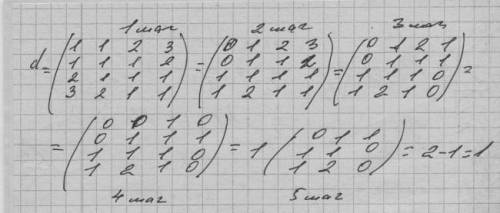 1 шаг 2 шаг 3 шаг
d = (1 1 2 3 = (0 1 2 3 = (0 1 2 1 =
1 1 1 2) 0 1 1 2) 0 1 1 1)
2 1 1 1 1 1 1 1 1 1 1 0
3 2 1 1) 1 2 1 1) 1 2 1 0)
= (0 0 1 0 = 1 (0 1 1 = 2-1=1
0 1 1 1 1 1 0
1 1 1 0 1 2 0)
1 2 1 0)
4 шаг 5 шаг